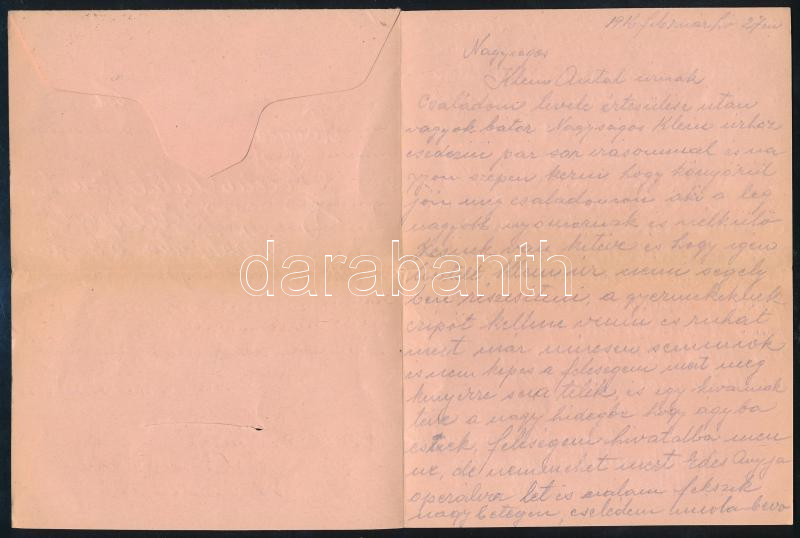 1916 februárhó 27én
Nagyságos
Klein Antal urnak
Családom levele értesülése után
vagyok bátor Nagyságos Klein urhoz
esedezni pár sor irásommal és na
gyon szépen kérni hogy könyörül
jön meg családomon aki a leg
nagyobb nyomornak és nélkülö
zésnek van kitéve és hogy igen
Klein ur nem segély
ben részesiteni, a gyermekeknek
czipőt kellene venni és ruhát
mert már nincsen semmiök
és nem képes a feleségem mert még
kenyérre sem telik, és így
téve a nagy hidegöz hogy ágyba
estek, feleségem hivatalba men
ne, de nem mehet mert Édes Anyja
operálva let és nálam fekszik
nagybetegen, cselédem mióta bevo
darabanth